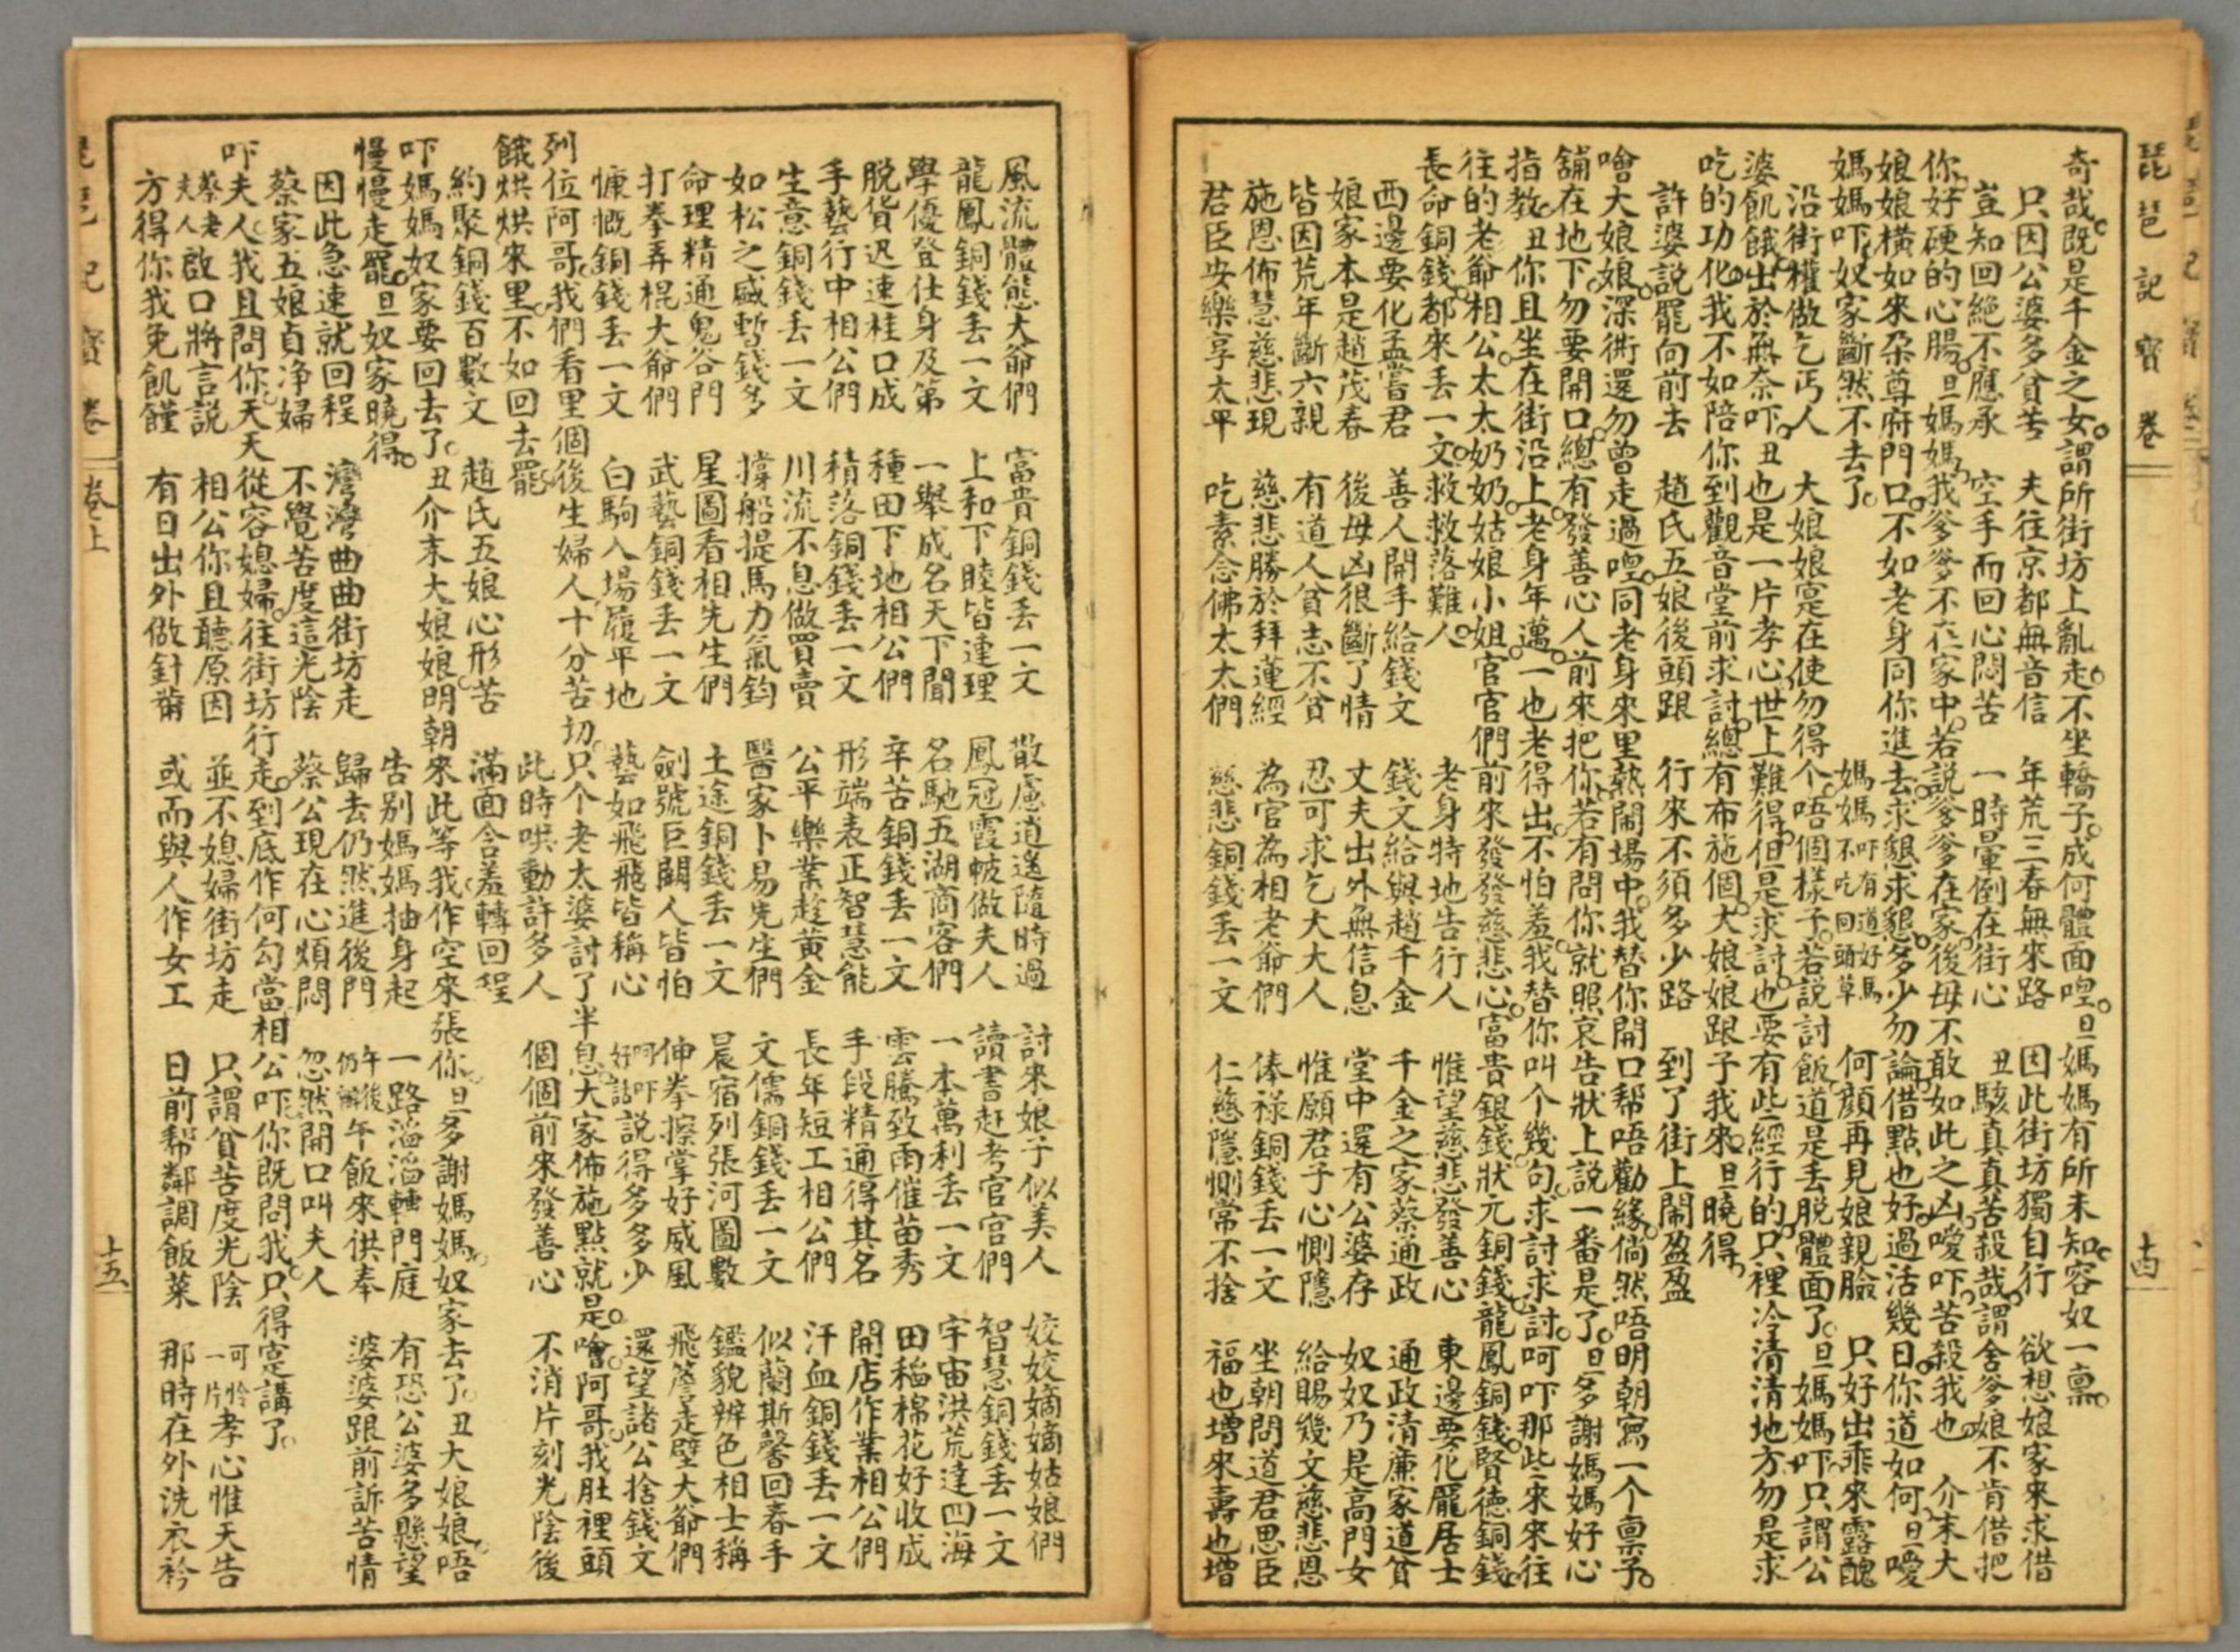 琵琶記寶卷
十四
奇哉。既是千金之女。謂所街坊上亂走。不坐轎子。成何體面喤。旦媽媽有所未知。容奴一禀。
只因公婆多貧苦 夫往京都無音信 年荒三春無來路 因此街坊獨自行 欲想娘家來求借
豈知回絕不應承 空手而回心悶苦 一時暈倒在街心 丑駭真真苦殺哉。謂舍爹娘不肯借把
你。好硬的心腸。旦媽媽。我爹爹不在家中。若說爹爹在家。後母不敢如此之凶。噯吓。苦殺我也。 介末大
娘娘橫如來朶尊府門口。不如老身同你進去。求懇求懇。多少勿論。借點也好。過活幾日。你道如何。旦噯
媽媽吓。奴家斷然不去了。 媽媽吓有道好馬不吃回頭草 何顏再見娘親臉 只好出乖來露醜
沿街權做乞丐人 大娘娘寔在使勿得个。唔個樣子。若說討飯。道是丟脫體面了。旦媽媽吓。只謂公
婆飢餓。出於無奈吓。丑也是一片孝心。世上難得。但是求討。也要有些經行的。只裡冷清清地方。勿是求
吃的功化。我不如陪你到觀音堂前求討。總有布施個。大娘娘跟子我來。旦曉得。
許婆說罷向前去 趙氏五娘後頭跟 行來不須多少路 到了街上鬧盈盈
噲大娘娘。深術還勿曾走過喤。同老身來里熱鬧場中。我替你開口帮唔勸緣。倘然唔明朝寫一个禀子。
舖在地下。勿要開口。總有發善心人前來把你。若有問你。就照哀告狀上說一番是了。旦多謝媽媽好心
指教。丑你且坐在街沿上。老身年邁。一也老得出。不怕羞。我替你叫个幾句。求討求討。呵吓那些來來往
往的老爺相公。太太奶奶。姑娘小姐。官官們。前來發發慈悲心。富貴銀錢。狀元銅錢。龍鳳銅錢。賢德銅錢。
長命銅錢。都來丟一文。救救落難人。 老身特地告行人 惟望慈悲發善心 東邊要化龐居士
西邊要化孟嘗君 善人開手給錢文 錢文給與趙千金 千金之家蔡通政 通政清廉家道貧
娘家本是趙茂春 後母凶很斷了情 丈夫出外無信息 堂中還有公婆存 奴奴乃是高門女
皆因荒年斷六親 有道人貧志不貧 忍可求乞大大人 惟願君子心惻隱 給賜幾文慈悲恩
施恩佈慧慈悲現 慈悲勝於拜蓮經 為官為相老爺們 俸祿銅錢丟一文 坐朝問道君思臣
君臣安樂享太平 吃素念佛太太們 慈悲銅錢丟一文 仁慈隱惻常不捨 福也增來壽也增
風流體態大爺們 富貴銅錢丟一文 散慮逍遙隨時過 討來娘子似美人 姣姣嫡嫡姑娘們
龍鳳銅錢丟一文 上和下睦皆連理 鳳冠霞帔做夫人 讀書赶考官官們 智慧銅錢丟一文
學優登仕身及第 一舉成名天下聞 名馳五湖商客們 一本萬利丟一文 宇宙洪荒達四海
脫貨迅速桂口成 種田下地相公們 辛苦銅錢丟一文 雲騰致雨催苗秀 田稻棉花好收成
手藝行中相公們 積落銅錢丟一文 形端表正智慧能 手段精通得其名 開店作業相公們
生意銅錢丟一文 川流不息做買賣 公平樂業趁黃金 長年短工相公們 汗血銅錢丟一文
如松之盛暫錢多 撐船提馬力氣鈞 醫家卜易先生們 文儒銅錢丟一文 似蘭斯馨回春手
命理精通鬼谷門 星圖看相先生們 土途銅錢丟一文 晨宿列張河圖數 鑑貌辨色相士稱
打拳弄棍大爺們 武藝銅錢丟一文 劍號巨闕人皆怕 伸拳擦掌好威風 飛簷走壁大爺們
慷慨銅錢丟一文 白駒入場履平地 藝如飛飛皆稱心 呵吓好話說得多多少 還望諸公捨錢文
列位阿哥。我們看里個後生婦人。十分苦切。只个老太婆討了半息。大家佈施點就是。噲。阿哥。我肚裡頭
餓烘烘來里。不如回去罷。 此時哄動許多人 個個前來發善心 不消片刻光陰後
約聚銅錢百數文 趙氏五娘心形苦 滿面含羞轉回程
吓媽媽奴家要回去了。丑介末大娘娘。明朝來此等我。作空來張你。旦多謝媽媽。奴家去了。丑大娘娘。唔
慢慢走罷。旦奴家曉得。 告別媽媽抽身起 一路滔滔轉門庭 有恐公婆多懸望
因此急速就回程 灣灣曲曲街坊走 歸去仍然進後門 午後仍辦午飯來供奉 婆婆跟前訴苦情
蔡家五娘貞淨婦 不覺苦度這光陰 蔡公現在心煩悶 忽然開口叫夫人
吓夫人。我且問你。天天從容媳婦。往街坊行走。到底作何勾當。相公吓。你既問我。只得寔講了。
蔡老夫人啟口將言說 相公你且聽原因 並不媳婦街坊走 只謂貧苦度光陰 可怜一片孝心惟天告
方得你我免飢饉 有日出外做針黹 或而與人作女工 日前帮鄰調飯菜 那時在外洗衣衿
琵琶記寶卷 卷上
十五